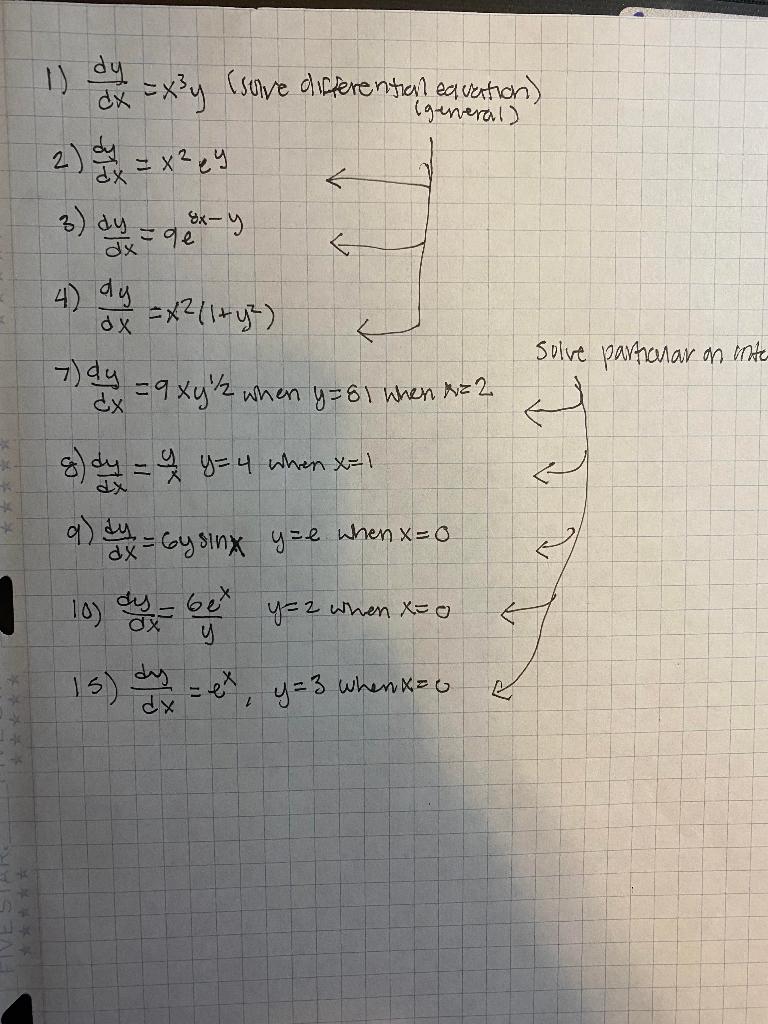 1) dy/dx = x³y (solve differential equation)
(general)
2) dy/dx = x² e^y
3) dy/dx = 9e^(8x-y)
4) dy/dx = x²(1+y²)
solve particular on
7) dy/dx = 9xy^(1/2) when y=81 when x=2
8) dy/dx = y/x y=4 when x=1
9) dy/dx = 6y sinx y=e when x=0
10) dy/dx = 6e^x/y y=2 when x=0
15) dy/dx = e^x, y=3 when x=0
FIVE STAR